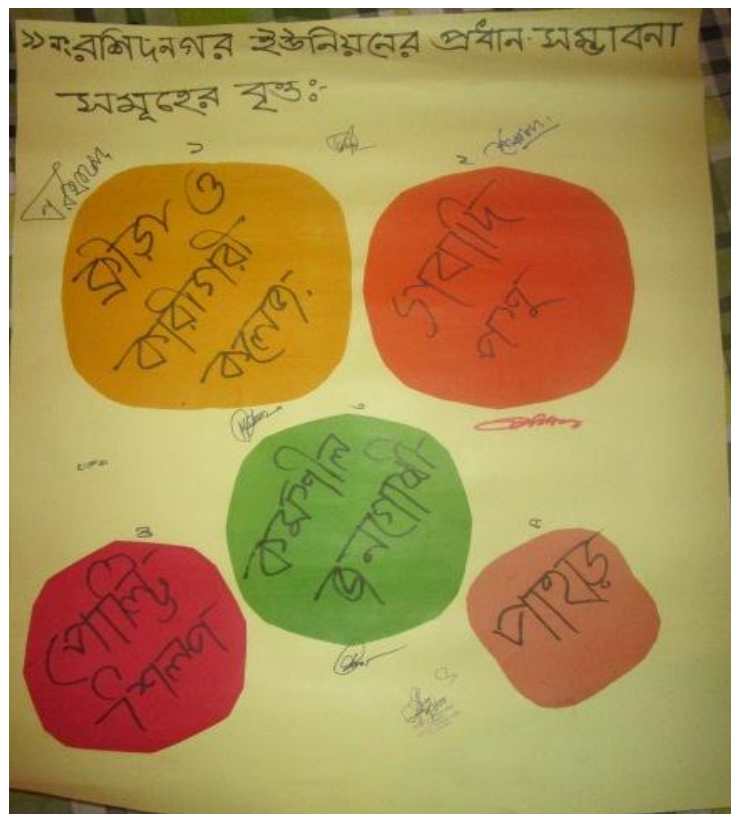 ১১নং রশিদনগর ইউনিয়নের প্রধান সম্ভাবনা
সমূহের বৃত্তঃ-
১
ক্রীড়া ও
কারিগরী
কলেজ
২
গবাদি
পশু
৩
কর্মশীল
জনগোষ্ঠী
৪
পোল্ট্রি
শিল্প
৫
পাহাড়